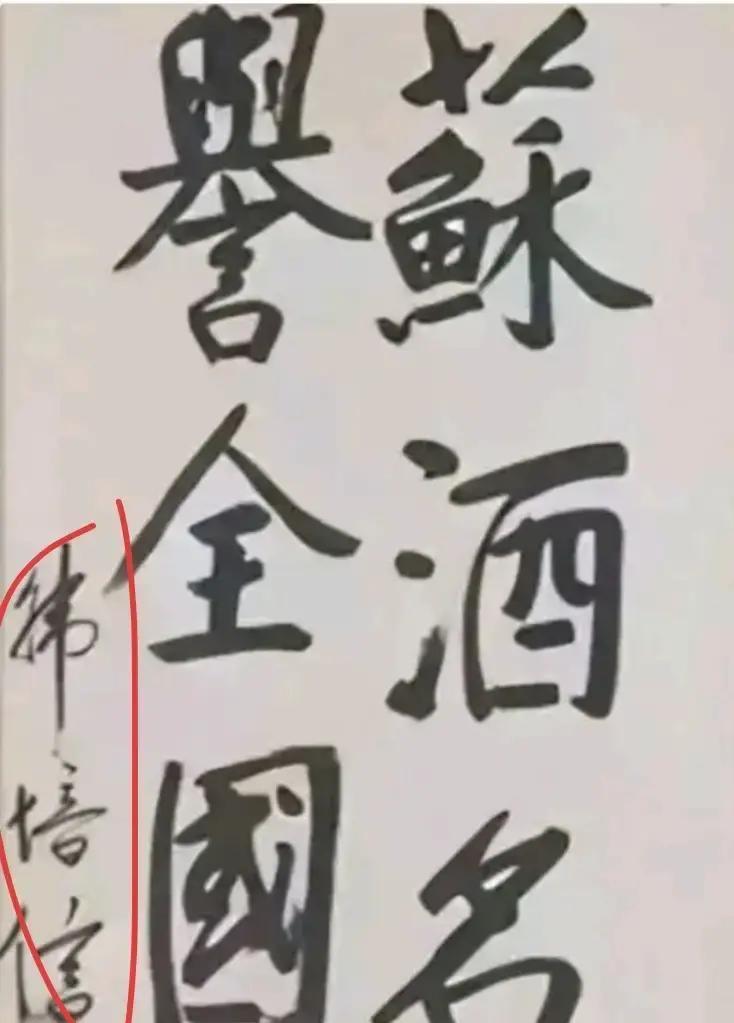 蘇酒名
譽全國
韩培信